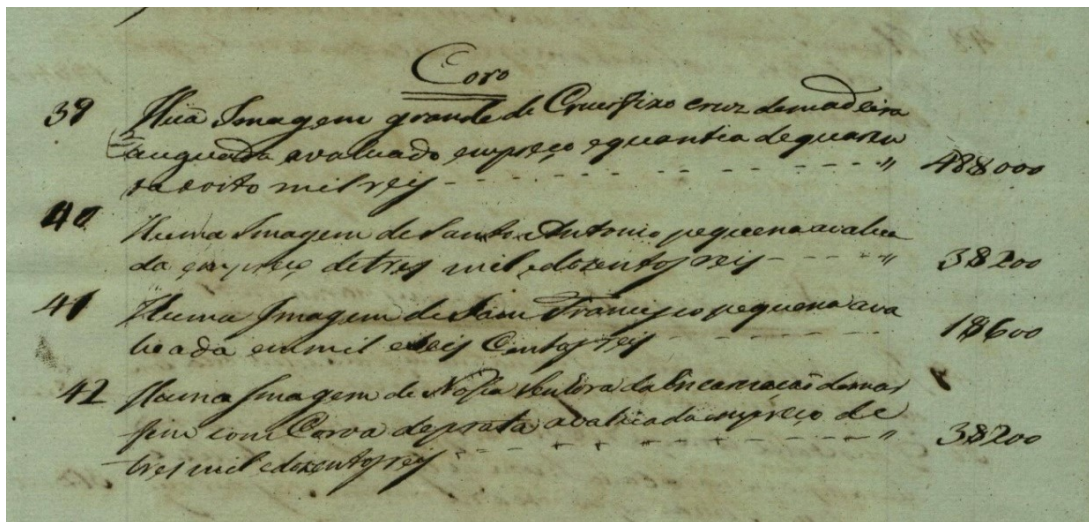 Coro
39 Huã Imagem grande de Crucifixo cruz demadeira
avaluado empreço equantia dequaren
ta eoito mil reis - - - - - - - - - " 48$000
40 Huma Imagem de Santo Antonio pequena avalia
da empreço detres mil edozentos reis - - - - " 3$200
41 Huma Imagem de Sam Francisco pequena ava
liada emmil eSeis Centos reis - - - - - 1$600
42 Huma Imagem de Nossa Senhora da Encarnação demar
fim com Coroa deprata avaliada empreço de
tres mil edozentos reis - - - - - - - - " 3$200